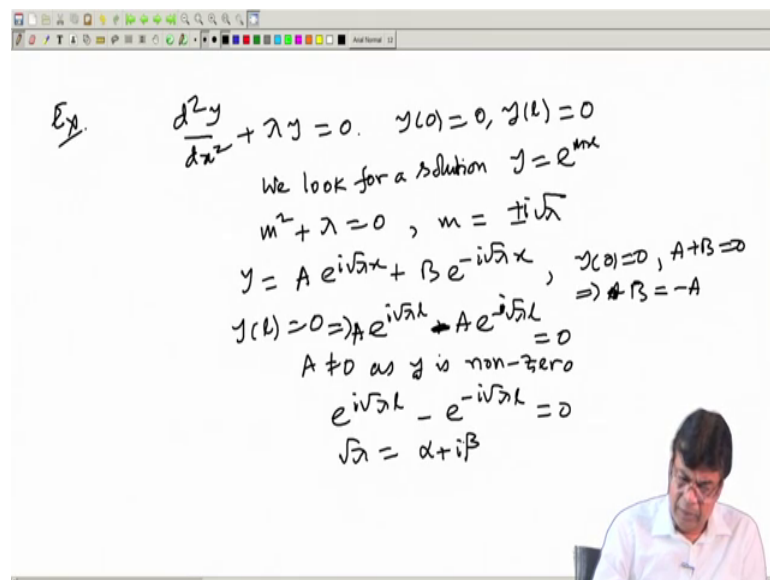 Arial Normal 12
Ex. d²y/dx² + λy = 0. y(0) = 0, y(l) = 0
We look for a solution y = e^{mx}
m² + λ = 0, m = ±i√λ
y = A e^{i√λx} + B e^{-i√λx}, y(0) = 0, A+B=0
⇒ B = -A
y(l) = 0 ⇒ A e^{i√λl} - A e^{-i√λl} = 0
A ≠ 0 as y is non-zero
e^{i√λl} - e^{-i√λl} = 0
√λ = α + iβ